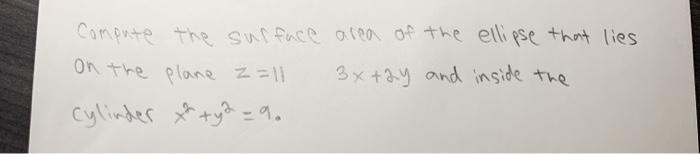 Compute the surface area of the ellipse that lies
on the plane z=11 3x+2y and inside the
cylinder x²+y²=9.